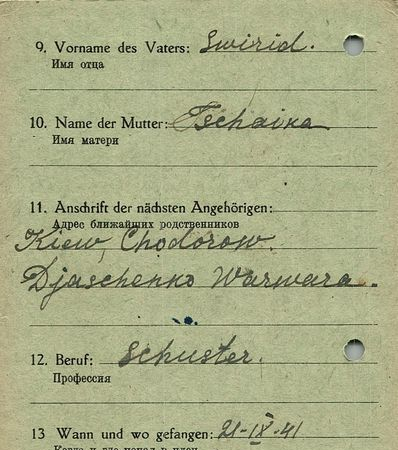 9. Vorname des Vaters: Swirid.
Имя отца
10. Name der Mutter: Tschaika
Имя матери
11. Anschrift der nächsten Angehörigen:
Адрес ближайших родственников
Kiew, Chodorow.
Djaschenko Warwara.
12. Beruf: Schuster.
Профессия
13 Wann und wo gefangen: 21-IX-41
Когда и где попал в плен